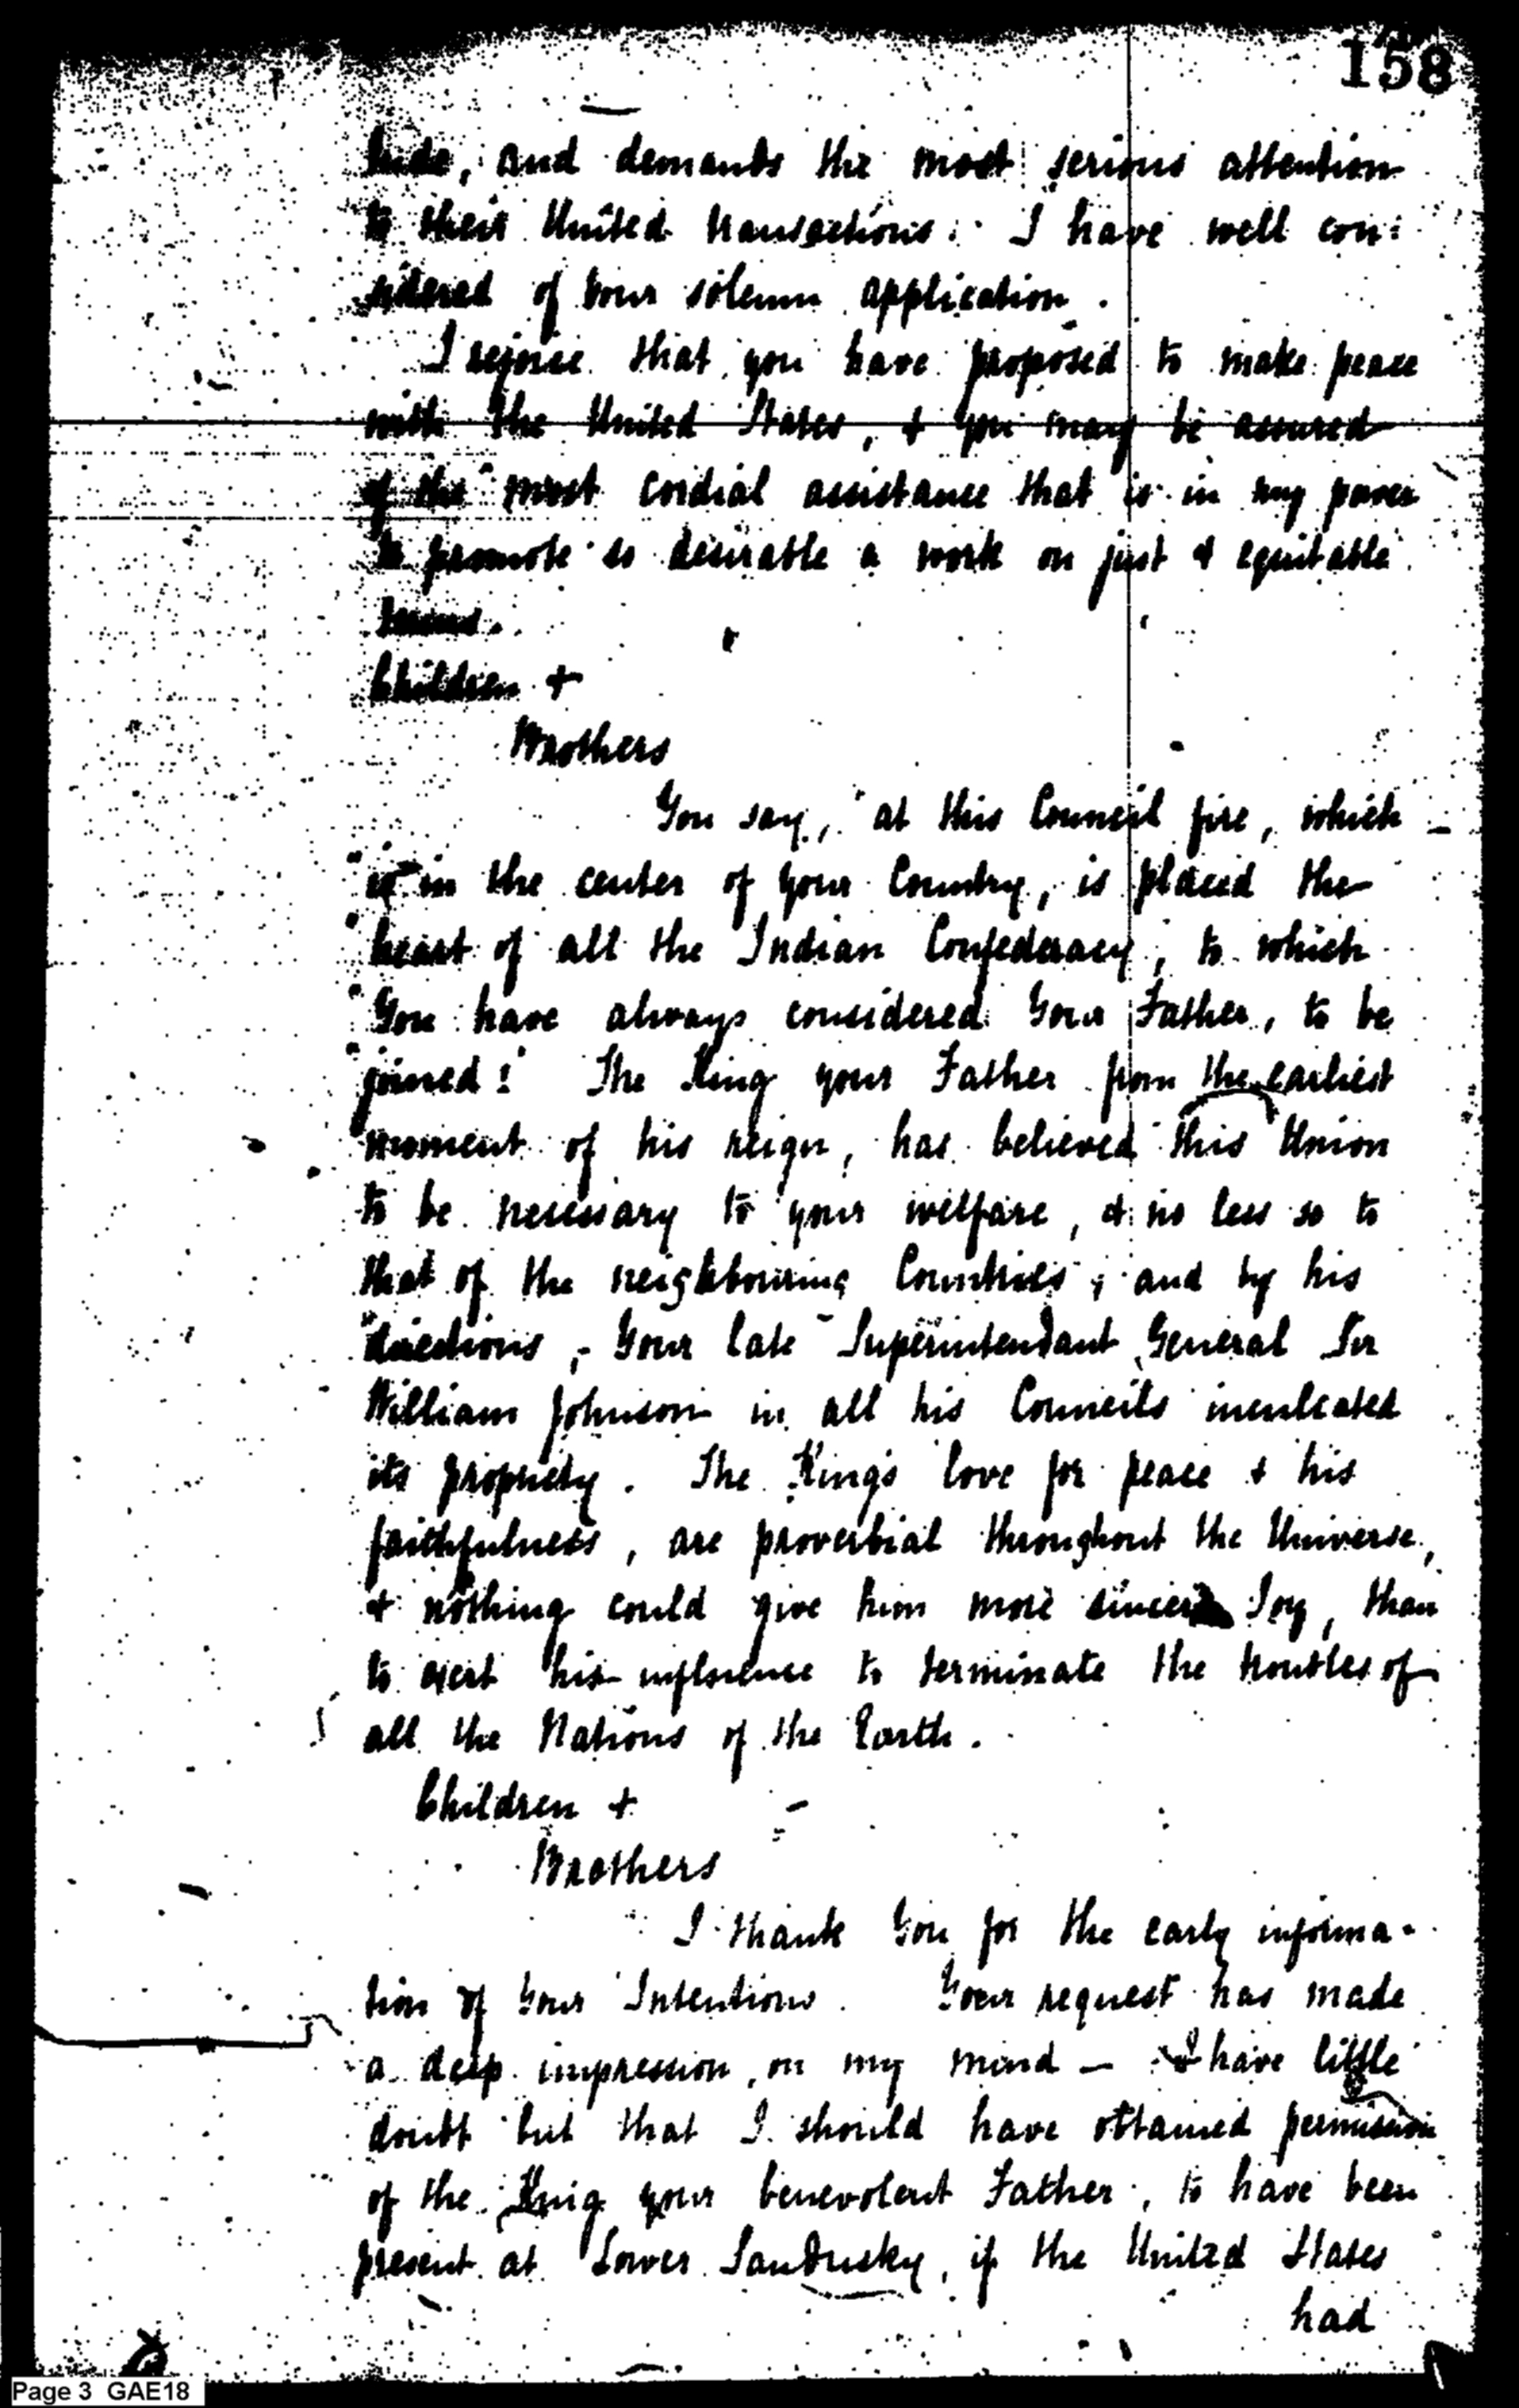 158
and demands the most serious attention
to their United transactions. I have well con:
sidered of your solemn application.
I rejoice that you have proposed to make peace
with the United States, & you may be assured
of the most cordial assistance that is in my power
to promote so desirable a work on just & equitable
terms.
Children &
Brothers
You say, "at this Council fire, which
"is in the center of your Country, is placed the
"heart of all the Indian Confederacy, to which
"you have always considered your Father, to be
"joined! The King your Father from the earliest
moment of his reign, has believed this Union
to be necessary to your welfare, & no less so to
that of the neighbouring Countries; and by his
directions, Your late Superintendant General Sir
William Johnson in all his Councils inculcated
its propriety. The King's love for peace & his
faithfulness, are proverbial throughout the Universe,
& nothing could give him more sincere Joy, than
to exert his influence to terminate the troubles of
all the Nations of the Earth.
Children &
Brothers
I thank You for the early informa-
tion of Your Intentions. Your request has made
a deep impression, on my mind — I have little
doubt but that I should have obtained permission
of the King your benevolent Father, to have been
present at Lower Sandusky, if the United States
had
Page 3 GAE18